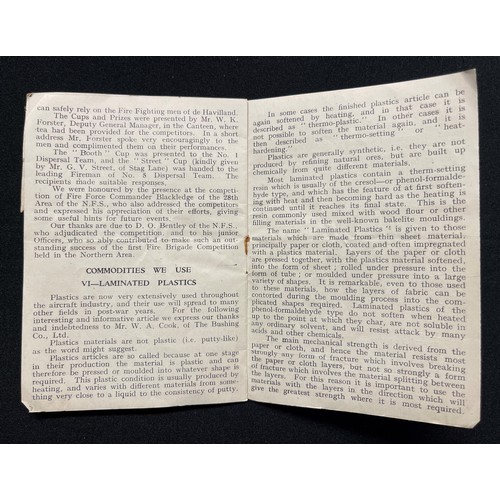 can safely rely on the Fire Fighting men of de Havilland.
The Cups and Prizes were presented by Mr. W. K.
Forster, Deputy General Manager, in the Canteen, where
tea had been provided for the competitors. In a short
address Mr. Forster spoke very encouragingly to the
men and complimented them on their performance.
The " Booth " Cup was presented to the No. 1
Dispersal Team, and the " Street " Cup (kindly given
by Mr. G. V. Street, of Stag Lane) was handed to the
leading Fireman of No. 8 Dispersal Team. The
recipients made suitable responses.
We were honoured by the presence at the competi-
tion of Fire Force Commander Blackledge of the 28th
Area of the N.F.S., who also addressed the competitors
and expressed his appreciation of their efforts, giving
some useful hints for future events.
Our thanks are due to D. O. Bentley of the N.F.S.,
who adjudicated the competition, and to his junior
Officers, who so ably contributed to make such an out-
standing success of the first Fire Brigade Competition
held in the Northern Area.
COMMODITIES WE USE
VI—LAMINATED PLASTICS
Plastics are now very extensively used throughout
the aircraft industry, and their use will spread to many
other fields in post-war years. For the following
interesting and informative article we express our thanks
and indebtedness to Mr. W. A. Cook, of The Bushing
Co., Ltd.
Plastics materials are not plastic (i.e. putty-like)
as the word might suggest.
Plastics articles are so called because at one stage
in their production the material is plastic and can
therefore be pressed or moulded into whatever shape is
required. This plastic condition is usually produced by
heating, and varies with different materials from some-
thing very close to a liquid to the consistency of putty.
In some cases the finished plastics article can be
again softened by heating, and in that case it is
described as " thermo-plastic." In other cases it is
not possible to soften the material again, and it is
then described as " thermo-setting " or " heat-
hardening."
Plastics are generally synthetic, i.e., they are not
produced by refining natural ores, but are built up
chemically from quite different materials.
Most laminated plastics contain a thermo-setting
resin which is usually of the cresol- or phenol-formalde-
hyde type, and which has the feature of at first soften-
ing with heat and then becoming hard as the heating is
continued until it reaches its final state. This is the
resin commonly used mixed with wood flour or other
filling materials in the well-known bakelite mouldings.
The name " Laminated Plastics " is given to those
materials which are made from thin sheet material,
principally paper or cloth, coated and often impregnated
with a plastics material. Layers of the paper or cloth
are pressed together, with the plastics material softened,
into the form of sheet ; rolled under pressure into the
form of tube ; or moulded under pressure into a large
variety of shapes. It is remarkable, even to those used
to these materials, how the layers of fabric can be
contorted during the moulding process into the com-
plicated shapes required. Laminated plastics of the
phenol-formaldehyde type do not soften when heated
up to the point at which they char, are not soluble in
any ordinary solvent, and will resist attack by many
acids and other chemicals.
The main mechanical strength is derived from the
paper or cloth, and hence the material resists most
strongly any form of fracture which involves breaking
the paper or cloth layers, but not so strongly a form
of fracture which involves the material splitting between
the layers. For this reason it is important to use the
materials with the layers in the direction which will
give the greatest strength where it is most required.